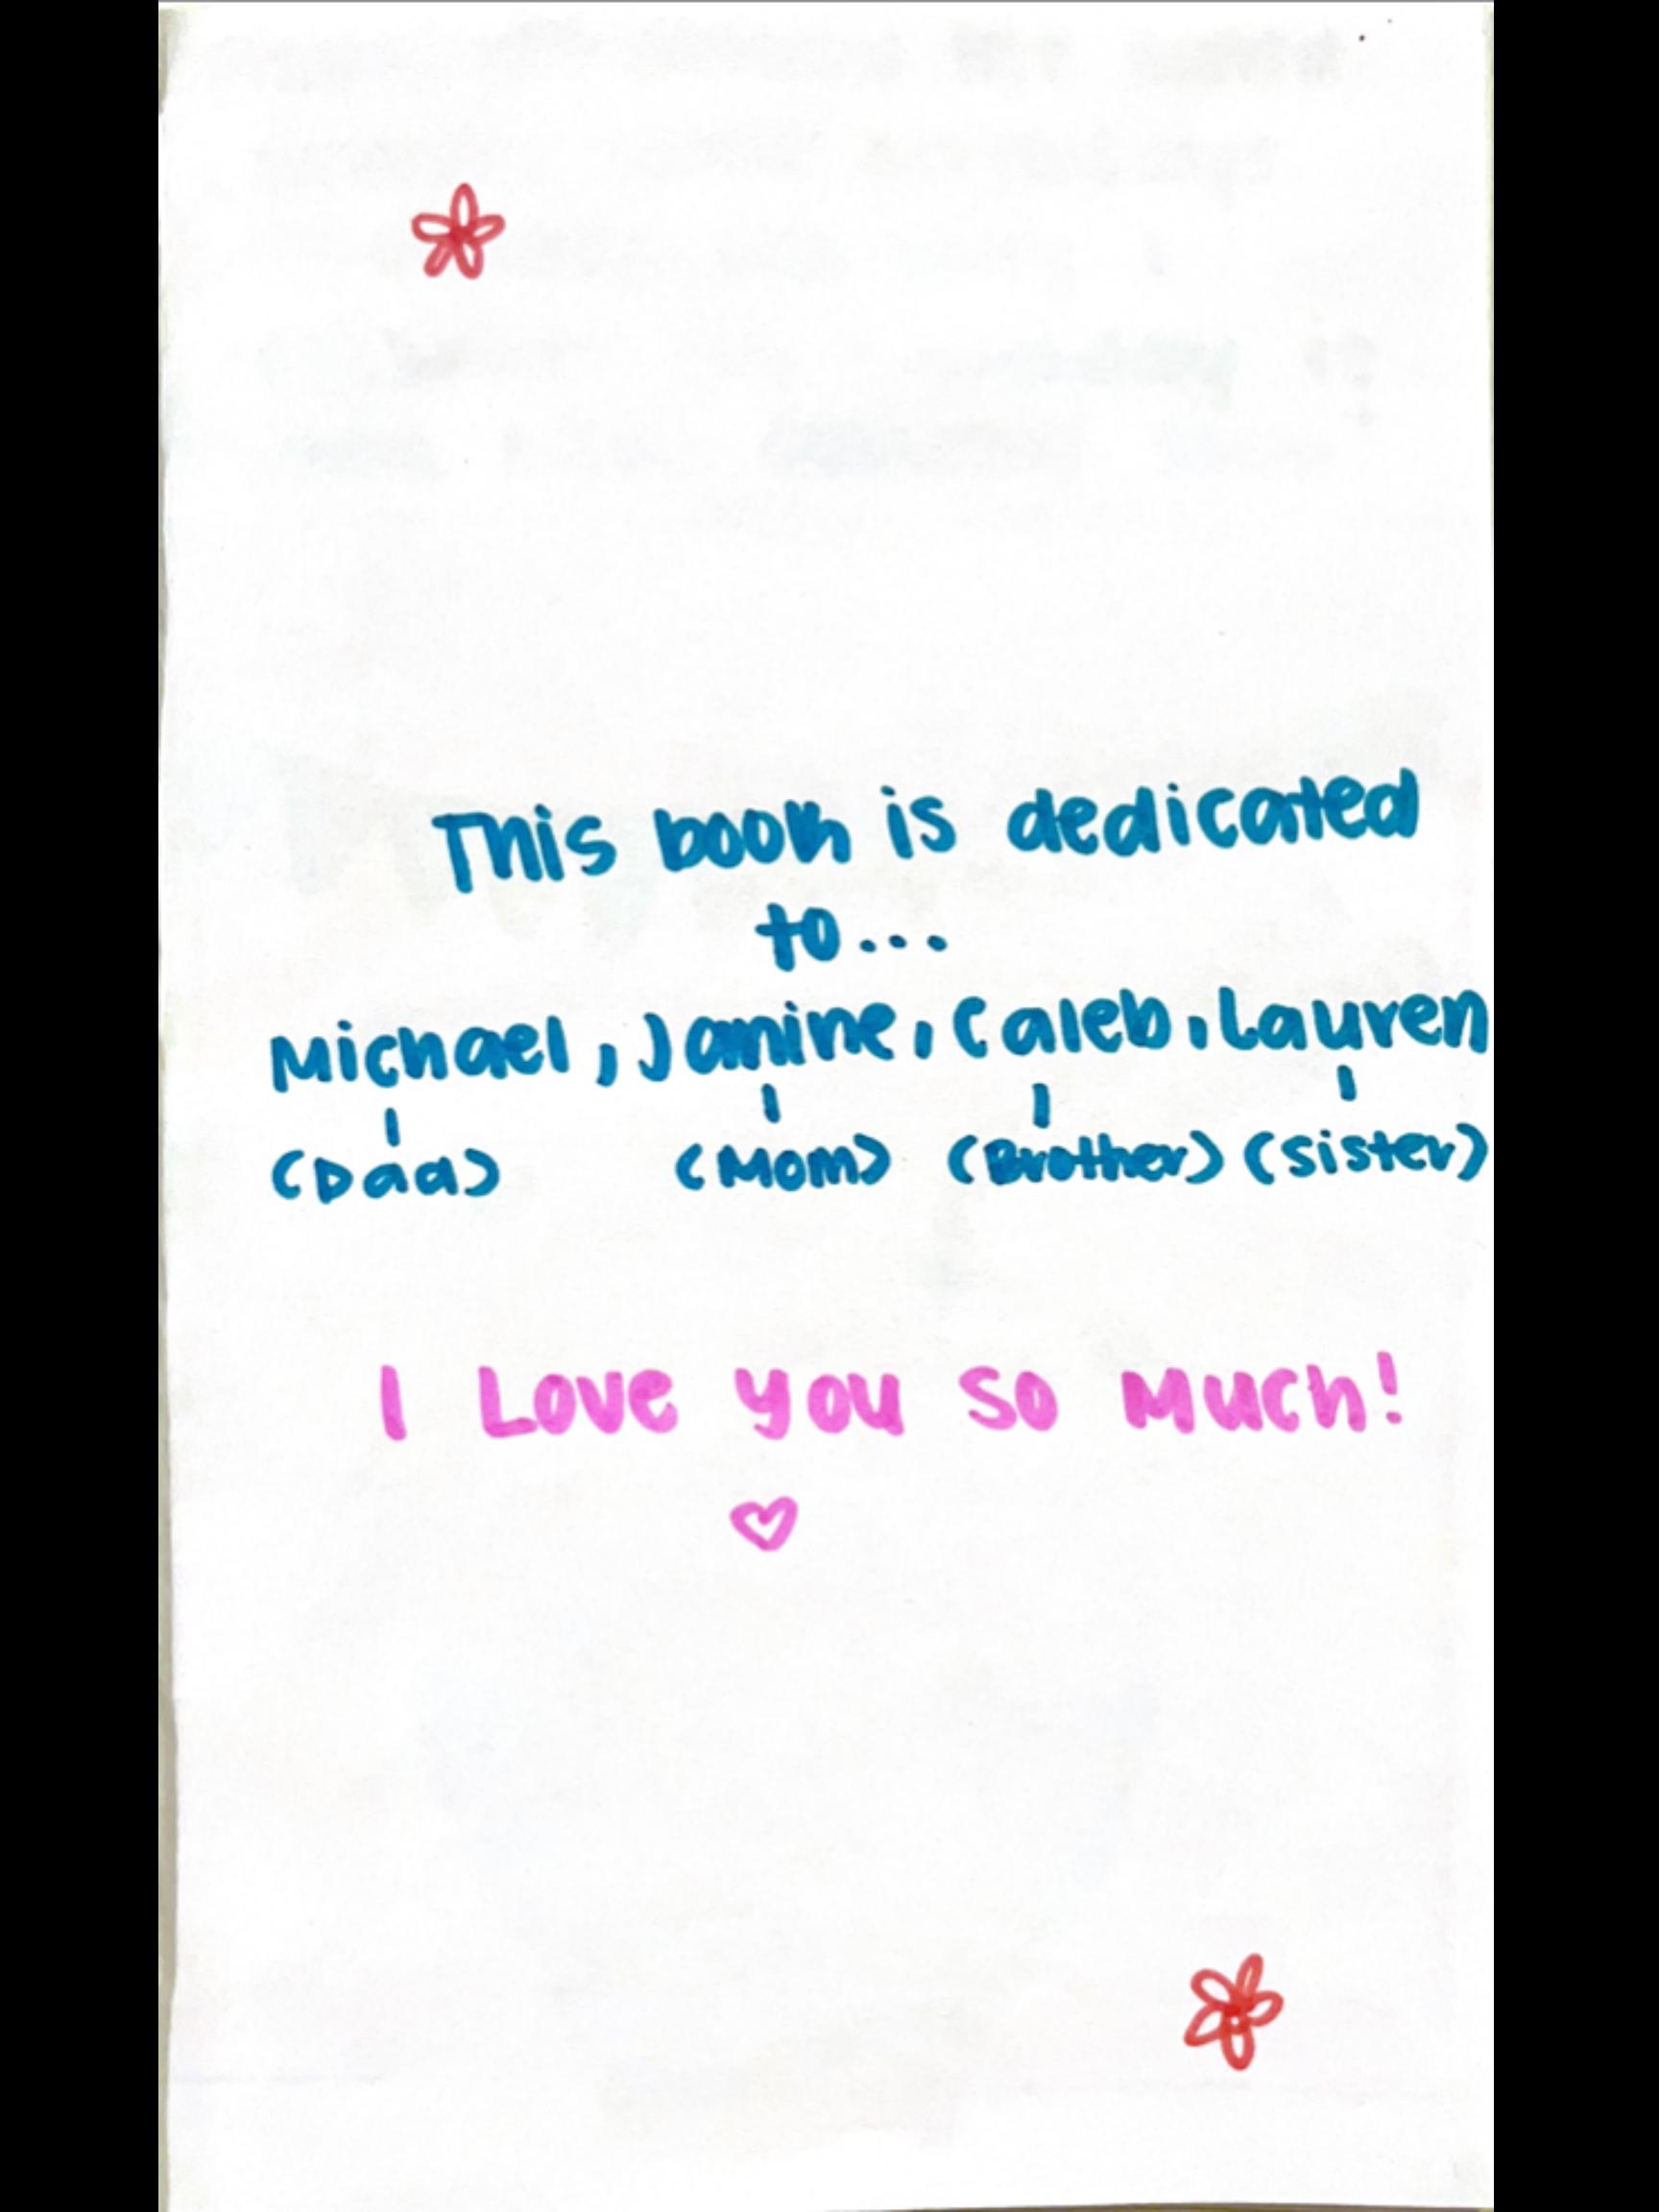 This book is dedicated
to...
Michael, Janine, Caleb, Lauren
(Dad) (Mom) (Brother) (Sister)
I Love you so much!